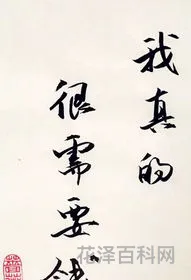 我真的
很需要钱
花泽百科网